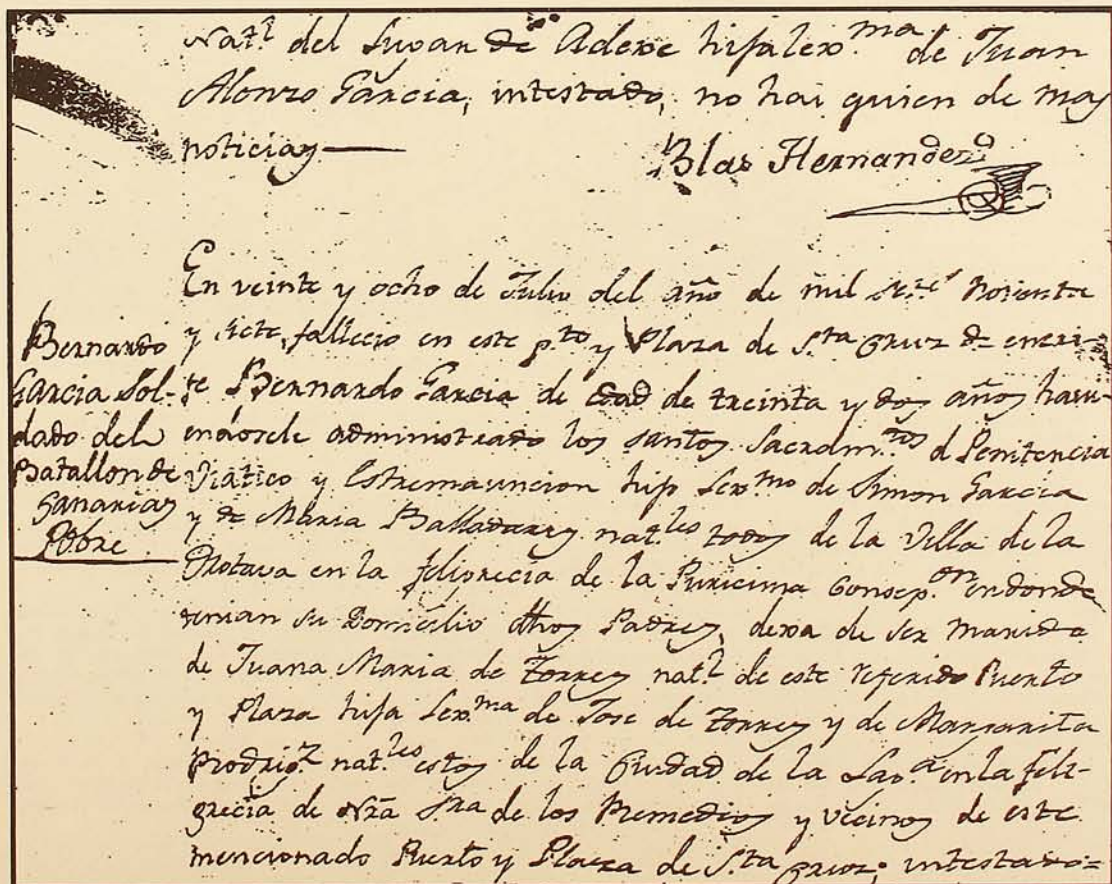 Nat.l del Lugar de Adexe hija lex.ma de Juan
Alonzo Garcia, intestado, no hai quien de mas
noticias —
Blas Hernandez
En veinte y ocho de Julio del año de mil set.s Noventa
y siete, fallecio en este p.to y Plaza de S.ta Cruz de teneri-
fe Bernardo Garcia de Edad de treinta y dos años havi-
endosele administrado los santos Sacram.tos d Penitencia
Viatico y Estremauncion hijo Lex.mo de Simon Garcia
y de Maria Balladares nat.les todos de la Villa de la
Orotava en la feligrecia de la Puricima Consep.on endonde
tenian su Domicilio dhos Padres, dexa de ser marido
de Juana Maria de Torres nat.l de este referido Puerto
y Plaza hija Lex.ma de Jose de Torres y de Margarita
Rodrig.z nat.les estos de la Ciudad de la Lag.a en la feli-
grecia de Nra Sra de los Remedios y vecinos de este
mencionado Puerto y Plaza de S.ta Cruz; intestado=
Bernardo
Garcia Sol-
dado del
Batallon de
Canarias
Pobre